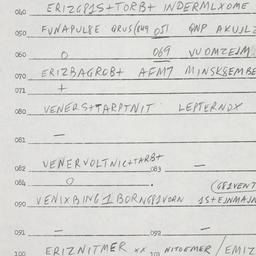 040 ERIZGP1S+TORB+ INDERMLXOME
050 FUNAPUL8E QRUS/ 051 QNP AKUJLZ
060 O 069 VUOMZEJM
070 ERIZBAGROB+ AFM7 MINSK8EMBE
071 +
080 VENERS+TARPTNIT LEPTERNDX
081 —
082 VENERVOLTNIC+TARB+ 083 —
084 O (GP1VENT
090 VENIXBING 1 BORNGP1VORN 1S+EJNMAJN
091 — 092 —
100 ERIZNITMER xx 101 NITOEMER / EMIZ